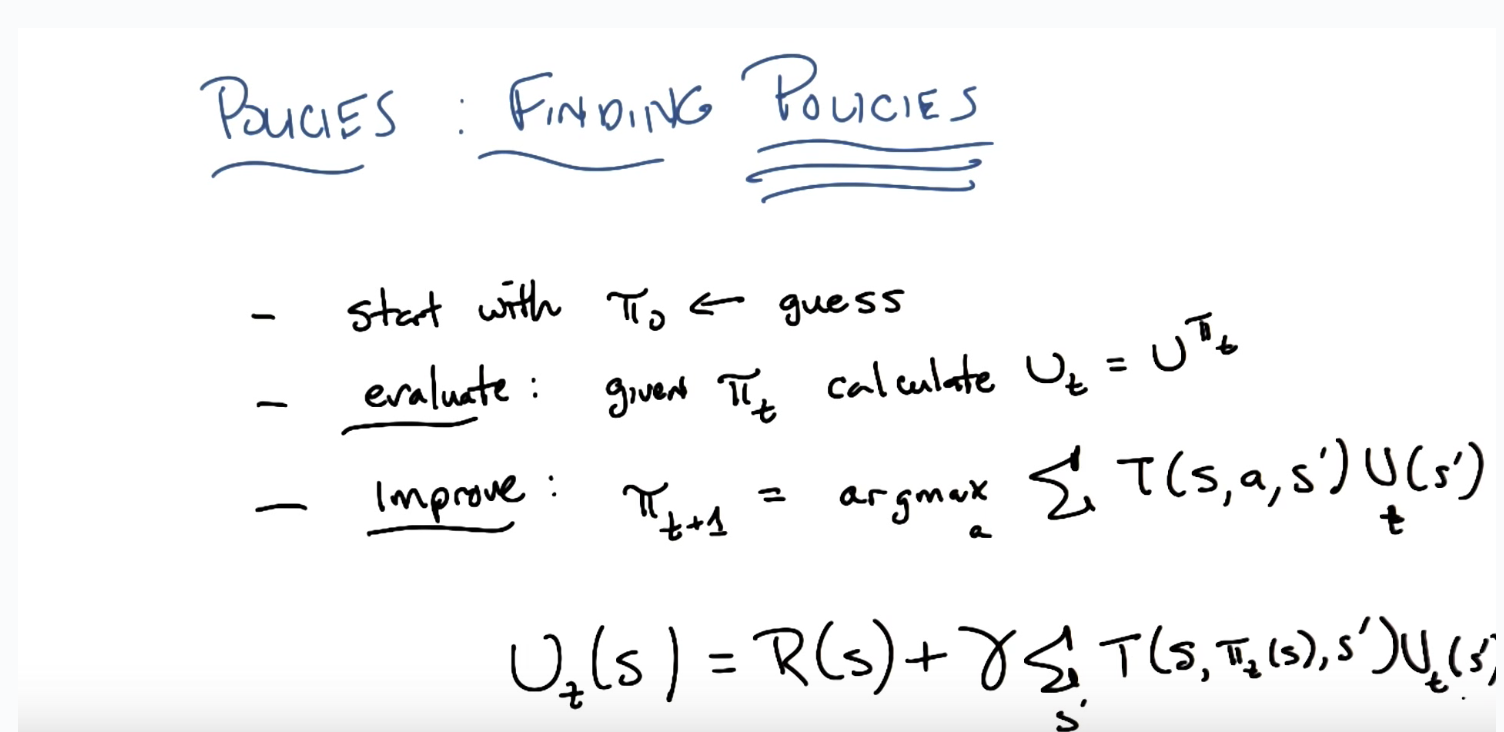 POLICIES : FINDING POLICIES
- start with π₀ ← guess
- evaluate : given πₜ calculate Uₜ = U^πₜ
- Improve : πₜ₊₁ = argmaxₐ Σ T(s,a,s')Uₜ(s')
Uₜ(s) = R(s) + γ Σₛ' T(s, πₜ(s), s')Uₜ(s'